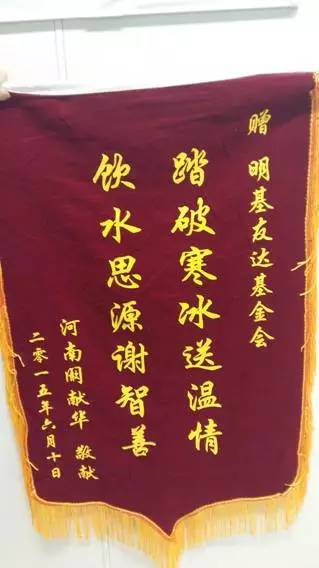 赠 明基友达基金会
踏破寒冰送温情
饮水思源谢智善
河南关献华 敬献
二零一五年六月十日